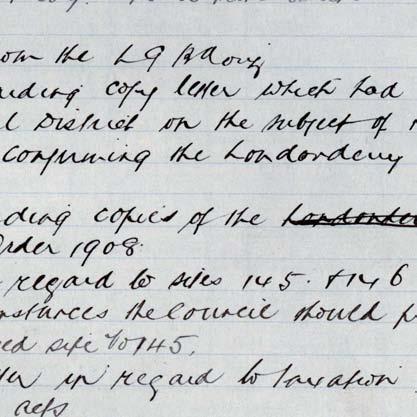 om the L G B
ding copy letter which had
l District on the subject of
confirming the Londonderry
ding copies of the Londonder
Order 1908.
regard to sites 145. & 146
nstances the Council should p
ed site to 145.
er in regard to taxation